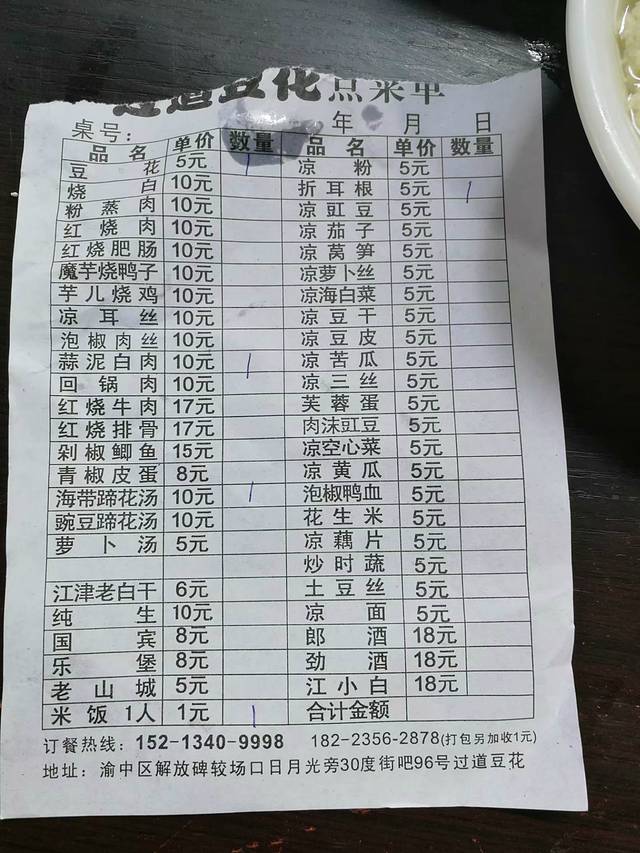 过道豆花点菜单
桌号： 年 月 日
品名 单价 数量 品名 单价 数量
豆花 5元 1 凉粉 5元
烧白 10元 折耳根 5元 1
粉蒸肉 10元 凉豇豆 5元
红烧肉 10元 凉茄子 5元
红烧肥肠 10元 凉莴笋 5元
魔芋烧鸭子 10元 凉萝卜丝 5元
芋儿烧鸡 10元 凉海白菜 5元
凉耳丝 10元 凉豆干 5元
泡椒肉丝 10元 凉豆皮 5元
蒜泥白肉 10元 1 凉苦瓜 5元
回锅肉 10元 凉三丝 5元
红烧牛肉 17元 芙蓉蛋 5元
红烧排骨 17元 肉沫豇豆 5元
剁椒鲫鱼 15元 凉空心菜 5元
青椒皮蛋 8元 凉黄瓜 5元
海带蹄花汤 10元 1 泡椒鸭血 5元
豌豆蹄花汤 10元 花生米 5元
萝卜汤 5元 凉藕片 5元
炒时蔬 5元
江津老白干 6元 土豆丝 5元
纯生 10元 凉面 5元
国宾 8元 郎酒 18元
乐堡 8元 劲酒 18元
老山城 5元 江小白 18元
米饭1人 1元 1 合计金额
订餐热线：152-1340-9998 182-2356-2878(打包另加收1元)
地址：渝中区解放碑较场口日月光旁30度街吧96号过道豆花